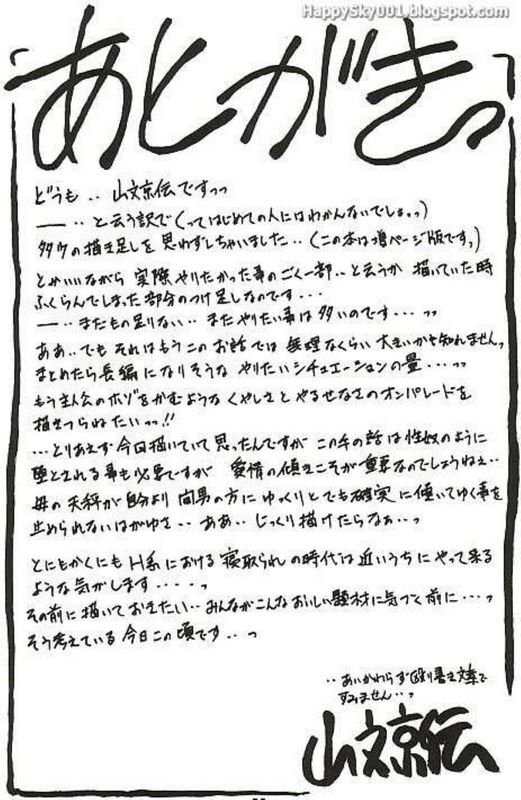 HappySky001.blogspot.com
あとがきっ
どうも‥山文京伝ですっっ
―‥と云う訳で(ってはじめての人にはわかんないでしょっっ)
多少の描き足しを思わずしちゃいました‥(この本は増ページ版ですっ)
とかいいながら実際やりたかった事のごく一部‥と云うか描いていた時
ふくらんでしまった部分のつけ足しなのです・・・
―‥まだもの足りない‥まだやりたい事は多いのです・・・っっ
ああ‥でもそれはもうこのお話では無理なくらい大きいかも知れませんっ
まとめたら長編になりそうなやりたいシチュエーションの量・・・っっ
もう主人公のホゾをかむようなくやしさとやるせなさのオンパレードを
描きつらねたいっっ!!
・・・とりあえず今日描いていて思ったんですがこの手の話は性奴のように
堕とされる事も必要ですが愛情の傾きこそが重要なのでしょうねぇ‥
母の天秤が自分より間男の方にゆっくりとでも確実に傾いてゆく事を
止められないはがゆさ‥ああ‥じっくり描けたらなぁ‥っ
とにもかくにもH系における寝取られの時代は近いうちにやって来る
ような気がします・・・・っ
その前に描いておきたい‥みんながこんなおいしい題材に気づく前に・・・っ
そう考えている今日この頃です‥っ
‥あいかわらず殴り書き文章で
すみません‥っ
山文京伝